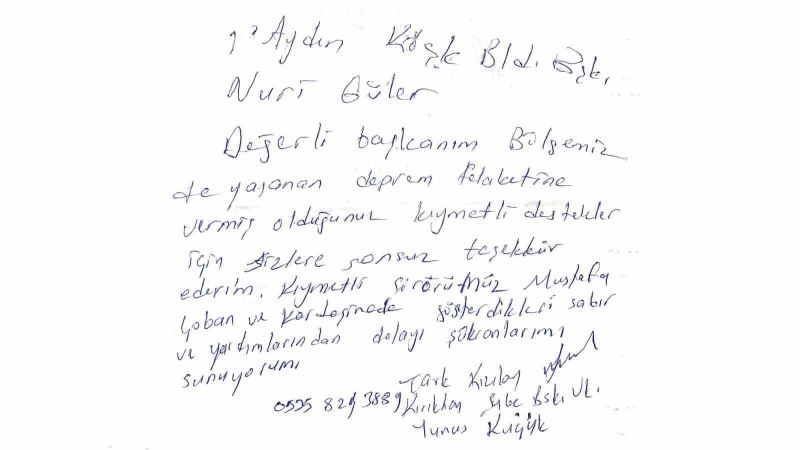 Aydın Köşk Bld. Bşk.
Nuri Güler
Değerli başkanım Bölgemiz
de yaşanan deprem felaketine
vermiş olduğunuz kıymetli destekler
için sizlere sonsuz teşekkür
ederim. Kıymetli Mustafa
Çoban ve Kardeşinede gösterdikleri sabır
ve yardımlarından dolayı şükranlarımı
sunuyorum
Türk Kızılay
0535 829 3889 Kırıkhan Şube Bşk. Vk.
Yunus Küçük